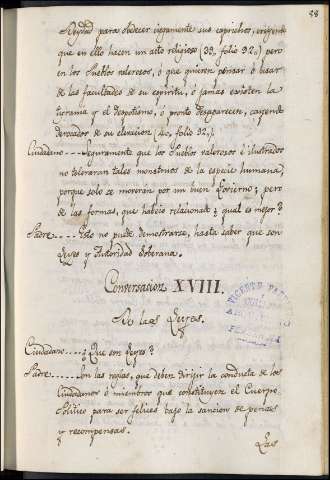 88
Deydad para obedecer ciegamente sus caprichos, creyendo
que en ello hacen un acto religioso (39, folio 92,) pero
en los Pueblos valerosos, ó que quieren pensar ó usar
de las facultades de su espíritu, ó jamas existen la
tirania y el despotismo, ó pronto desaparecen, cayendo
derrocados de su elevacion (40, folio 92,).
Ciudadano---Seguramente que los Pueblos valerosos é ilustrados
no toleraran tales monstruos de la especie humana,
porque solo se moveran por un buen Govierno; pero
de las formas, que habeis relacionado ¿ qual es mejor?
Padre---Esto no puede demostrarse, hasta saber que son
Leyes y Autoridad Soberana.
Conversacion XVIII.
De las Leyes.
VICENTE
Ciudadano---¿Que son Leyes?
Padre---Son las reglas, que deben dirijir la conducta de los
Ciudadanos ó miembros que constituyen el Cuerpo
Politico para ser felices bajo la sancion de penas
y recompensas.
Las